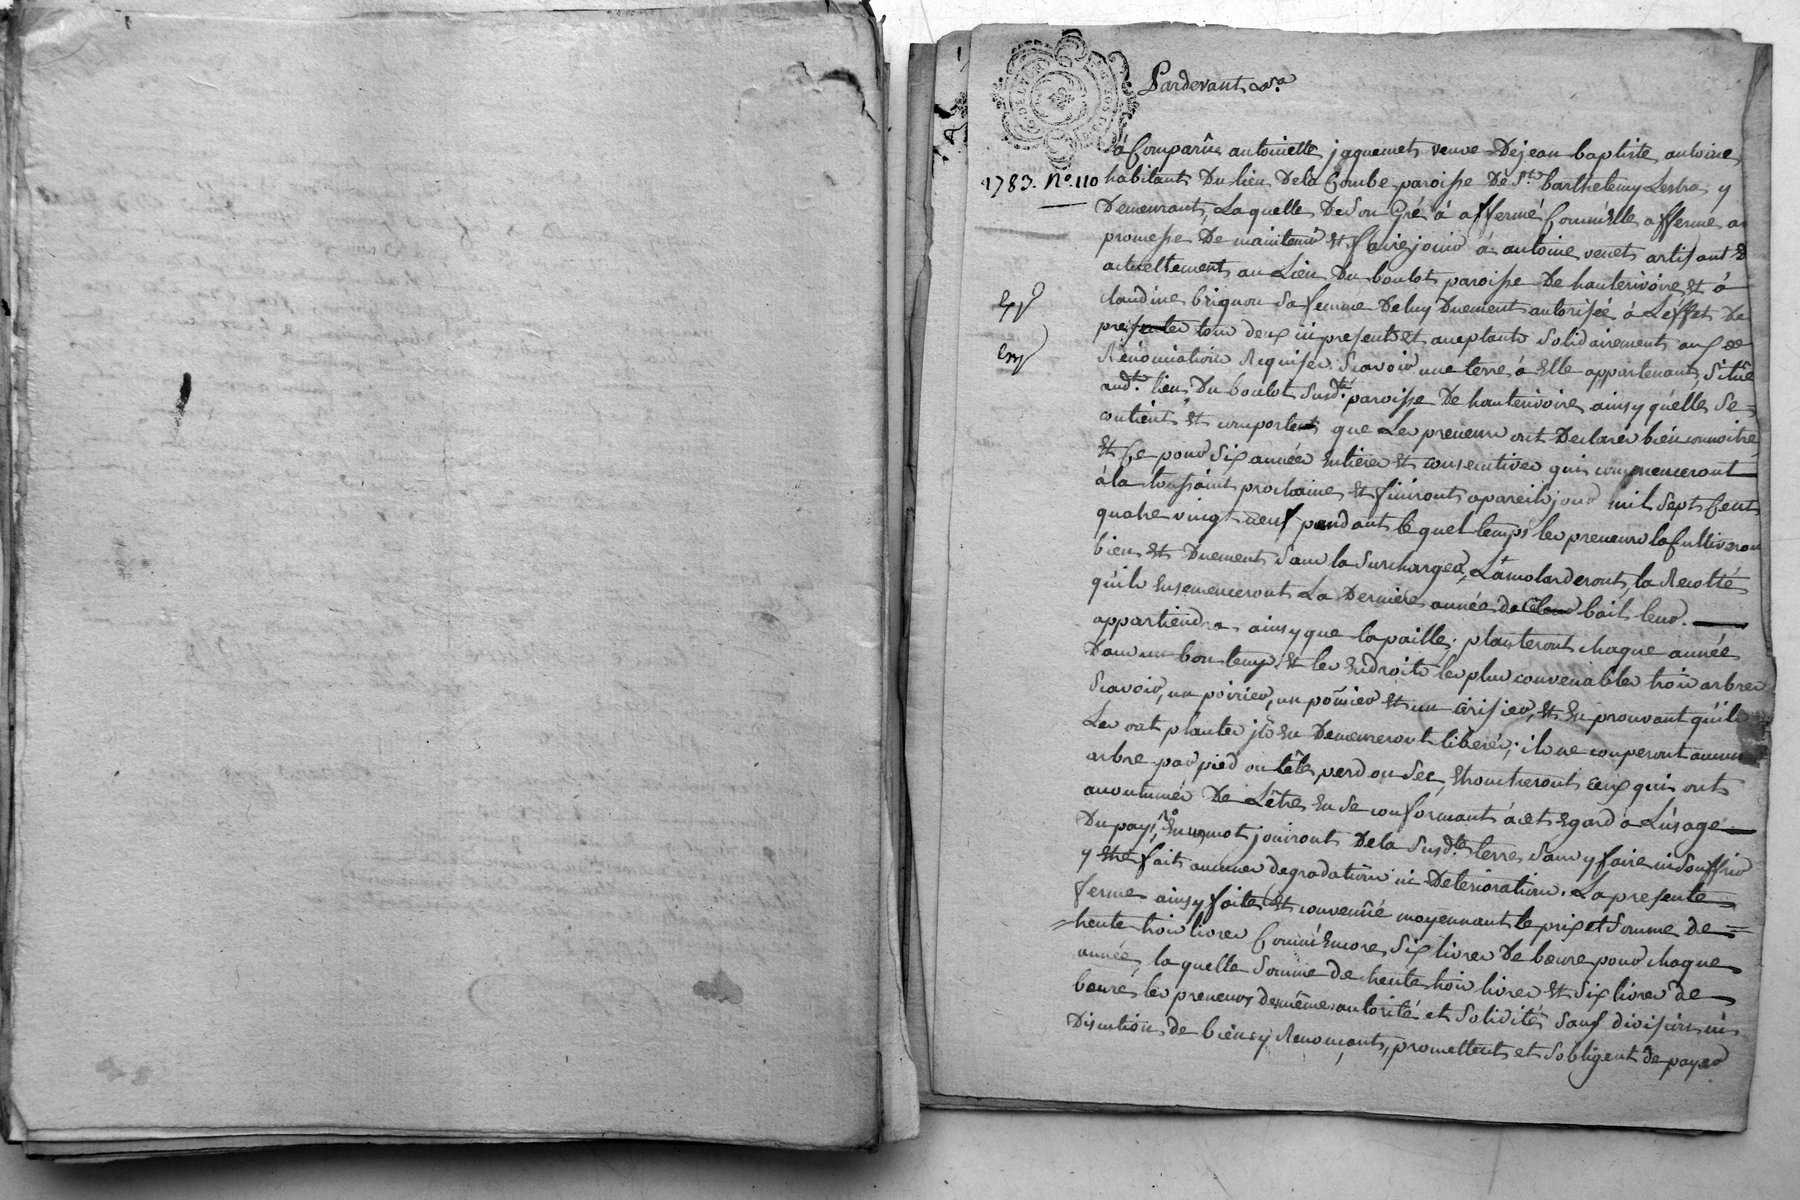 Pardevant &a
1783. N.º 110
à Comparûe antoinette jaquemet veuve Dejean baptiste antoine
habitant Du lieu Dela Combe paroisse De St. barthelemy Lestra y
Demeurant, Laquelle De son Gré à affermé Comm'Elle afferme a
promesse De maintenir Et faire jouir à antoine venet artisant
actuellement au Lieu Du boulot paroisse De hauterivoire Et à
claudine brignon sa femme De luy Duement autorisée à L'éffet De
tous deux ici presents Et aceptants solidairement aux
Rénonciations Requises, Scavoir une terre à Elle appartenant, Située
audt. lieu Du boulot susdte. paroisse De hauterivoire ainsy qu'elle se
contient Et comporte que Les preneurs ont Declaré bien connoitre
Et Ce pour Six années Entières Et consecutives qui commenceront
à la toussaint prochaine Et finiront apareil jour mil Sept Cent
quatre vingt neuf pendant lequel temps les preneurs la Cultiveron
bien Et Duement Sans la Surcharger, L'amolarderont, la Recolte
qu'ils Ensemenceront La Derniere année de bail leur
appartiendra ainsy que la paille; planteront chaque année
Dans un bon temps Et les Endroits les plus convenables trois arbres
Scavoir, un poirier, un pomier Et un cirisier, Et En prouvant qu'ils
Les ont plantés ils En Demeureront liberés; ils ne couperont aucun
arbre par pied ou tête, verd ou Sec, Etroncheront ceux qui ont
accoutumés De L'être En se conformant à cet Egard à L'usage
Du pays, En un mot jouiront De la Susdte. terre Sans y faire ni Souffrir
y Etre fait aucunes degradations ni Deteriorations. La presente
ferme ainsy faite Et convenûe moyennant le prix et Somme De
trente trois livres Comm'Encore Six livres De beure pour chaque
année, la quelle Somme de trente trois livres Et Six livres de
beure les preneurs de même autorité et Solidité Sans division ni
Discution de biens y Renonçants, promettent et Sobligent de payer